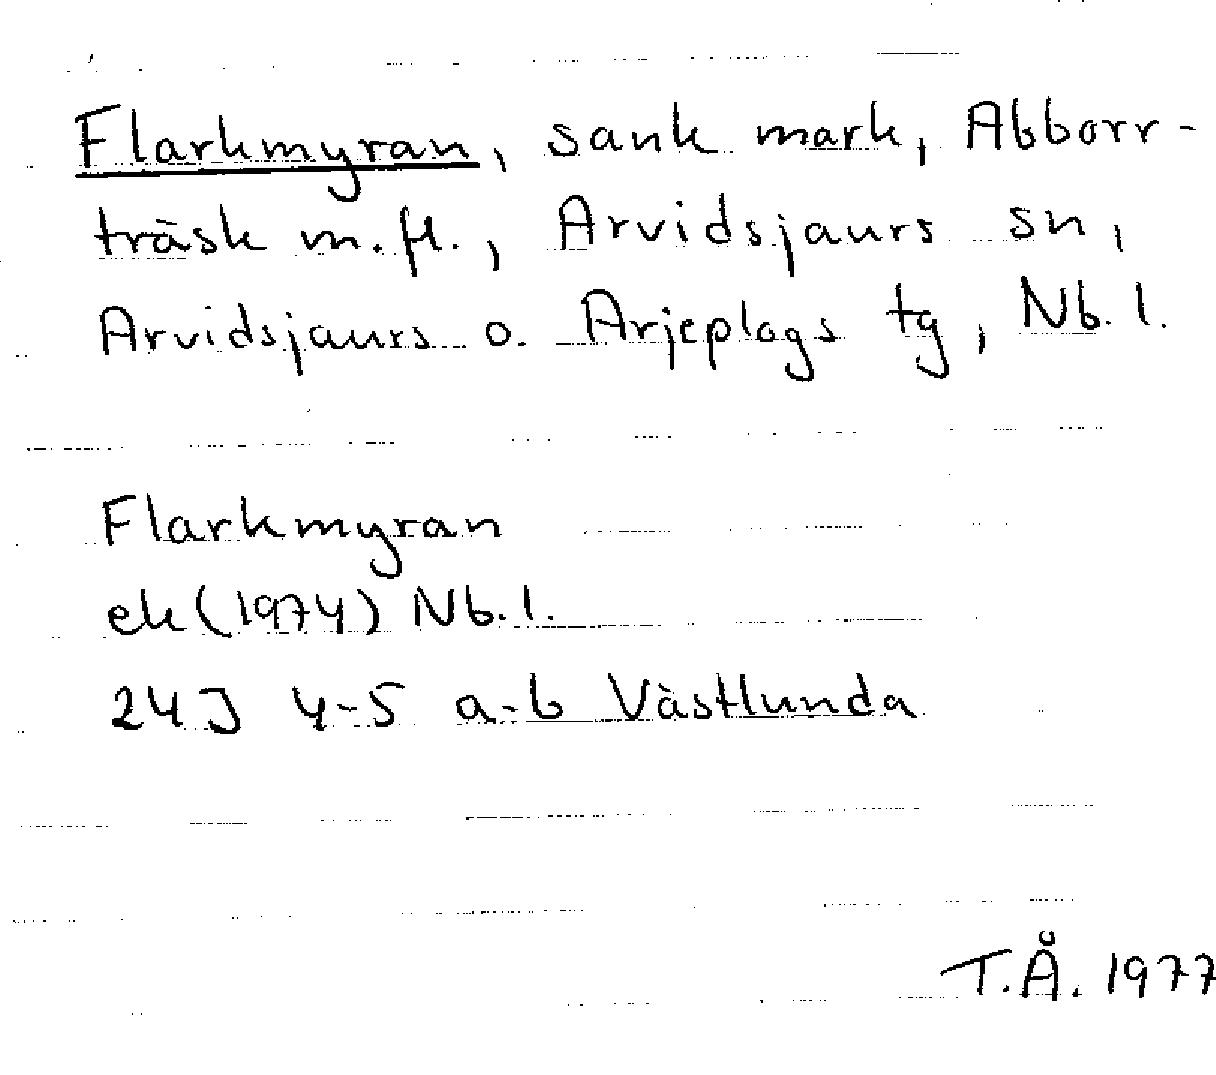 Flarkmyran, sank mark, Abborr-
träsk m.fl., Arvidsjaurs sn,
Arvidsjaurs o. Arjeplogs tg, Nb. l.
Flarkmyran
ek (1974) Nb. l.
24J 4-5 a-b Västlunda
T.Å. 1977